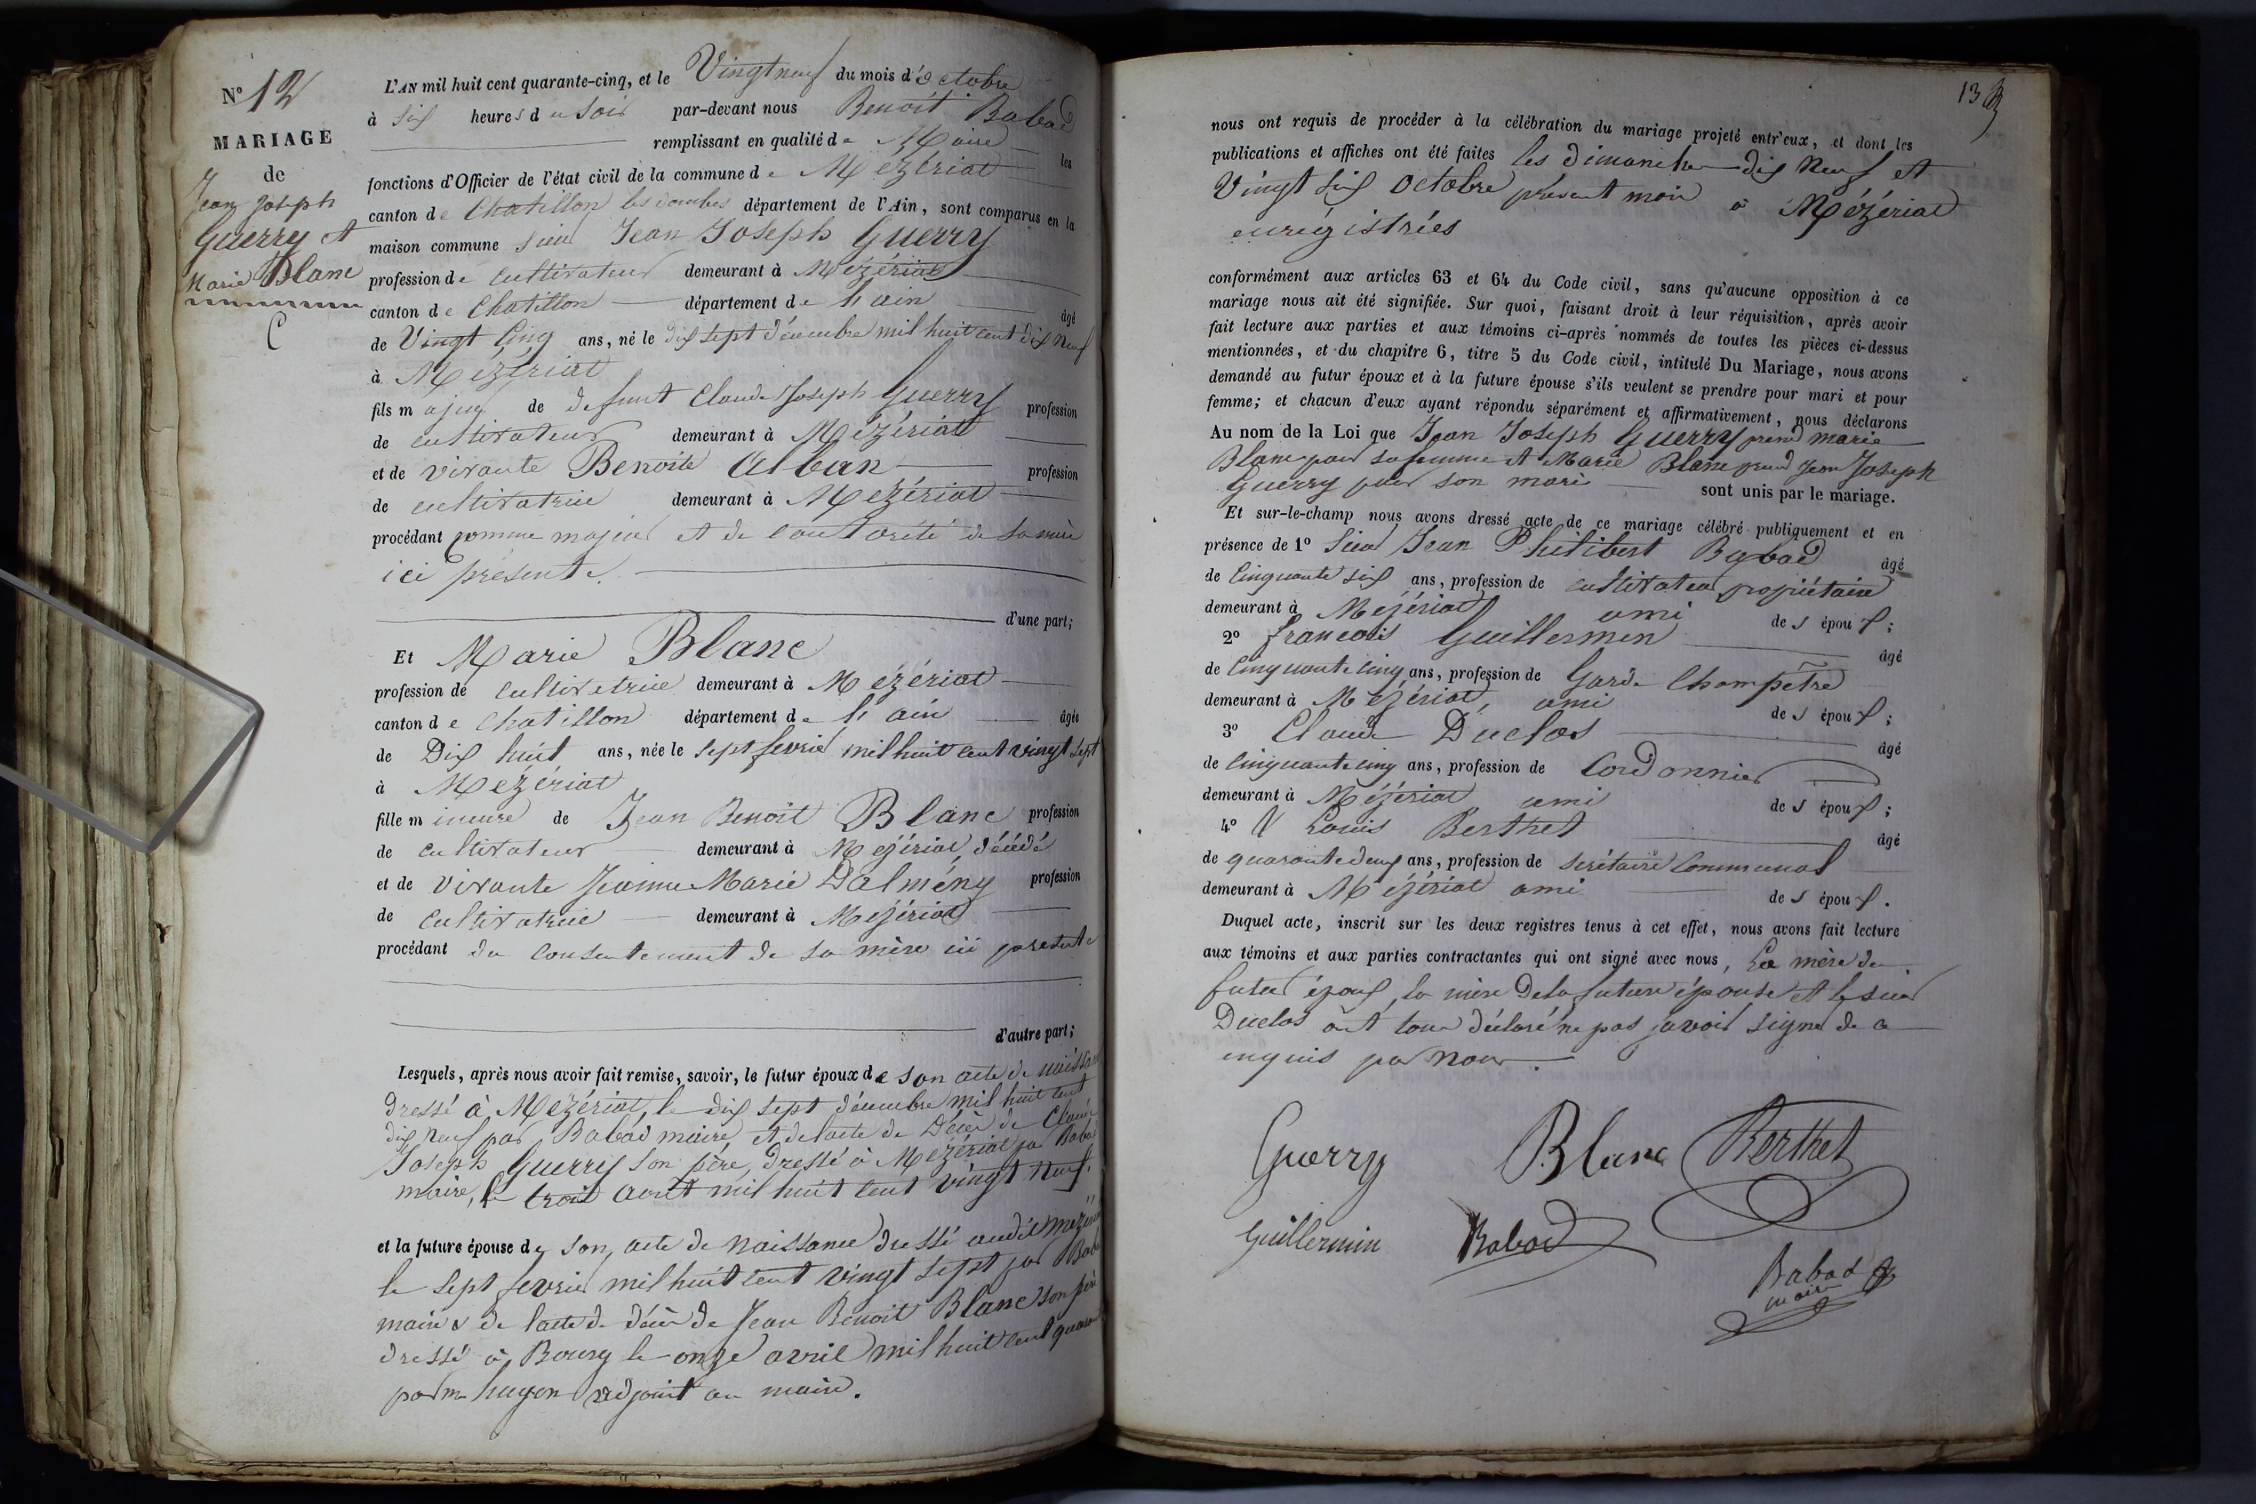 N° 12
MARIAGE
de
Jean Joseph
Guerry et
Marie Blanc
L'AN mil huit cent quarante-cinq, et le Vingt neuf du mois d'octobre
à six heures du soir par-devant nous Benoit Babad
remplissant en qualité de Maire les
fonctions d'Officier de l'état civil de la commune de Mézériat
canton de Chatillon les dombes département de l'Ain, sont comparus en la
maison commune sieur Jean Joseph Guerry
profession de cultivateur demeurant à Mézériat
canton de Chatillon département de l'ain âgé
de Vingt Cinq ans, né le dix sept décembre mil huit cent dix neuf
à Mézériat
fils majeur de defunt Claude Joseph Guerry profession
de cultivateur demeurant à Mézériat
et de vivante Benoite Alban profession
de cultivatrice demeurant à Mézériat
procédant comme majeur et de l'autorité de sa mère
ici présente.
d'une part;
Et Marie Blanc
profession de cultivatrice demeurant à Mézériat
canton de Chatillon département de l'ain âgée
de Dix huit ans, née le sept fevrier mil huit cent vingt sept
à Mézériat
fille mineure de Jean Benoit Blanc profession
de cultivateur demeurant à Mézériat, décédé
et de vivante Jeanne Marie Dalmény profession
de cultivatrice demeurant à Mézériat
procédant du consentement de sa mère ici presente
d'autre part;
Lesquels, après nous avoir fait remise, savoir, le futur époux de son acte de naissance
dressé à Mézériat, le dix sept décembre mil huit cent
dix neuf par Babad maire, et de l'acte de Décès de Claude
Joseph Guerry son père, dressé à Mézériat par Babad
maire, le trois août mil huit cent vingt neuf.
et la future épouse de son acte de naissance dressé audit Mézériat
le sept fevrier mil huit cent vingt sept par Babad
maire & de l'acte de décès de Jean Benoit Blanc son père
dressé à Bourg le onze avril mil huit cent quarante
par mr hugon adjoint au maire.
13
nous ont requis de procéder à la célébration du mariage projeté entr'eux, et dont les
publications et affiches ont été faites les dimanches dix neuf et
Vingt six Octobre présent mois à Mézériat
enrégistrées
conformément aux articles 63 et 64 du Code civil, sans qu'aucune opposition à ce
mariage nous ait été signifiée. Sur quoi, faisant droit à leur réquisition, après avoir
fait lecture aux parties et aux témoins ci-après nommés de toutes les pièces ci-dessus
mentionnées, et du chapitre 6, titre 5 du Code civil, intitulé Du Mariage, nous avons
demandé au futur époux et à la future épouse s'ils veulent se prendre pour mari et pour
femme; et chacun d'eux ayant répondu séparément et affirmativement, nous déclarons
Au nom de la Loi que Jean Joseph Guerry prend marie
Blanc pour sa femme et Marie Blanc prend Jean Joseph
Guerry pour son mari sont unis par le mariage.
Et sur-le-champ nous avons dressé acte de ce mariage célébré publiquement et en
présence de 1° sieur Jean Philibert Babad âgé
de Cinquante six ans, profession de cultivateur propriétaire
demeurant à Mézériat ami des époux;
2° francois Guillermin âgé
de Cinquante cinq ans, profession de Garde Champêtre
demeurant à Mézériat, ami des époux;
3° Claude Duclos âgé
de Cinquante cinq ans, profession de Cordonnier
demeurant à Mézériat ami des époux;
4° Louis Berthet âgé
de quarante deux ans, profession de secrétaire Communal
demeurant à Mézériat ami des époux.
Duquel acte, inscrit sur les deux registres tenus à cet effet, nous avons fait lecture
aux témoins et aux parties contractantes qui ont signé avec nous, La mère du
futur époux, la mère de la future épouse et le sieur
Duclos ont tous déclaré ne pas savoir signer de ce
enquis par nous.
Guerry Blanc Berthet
Guillermin Babad
Babad
maire